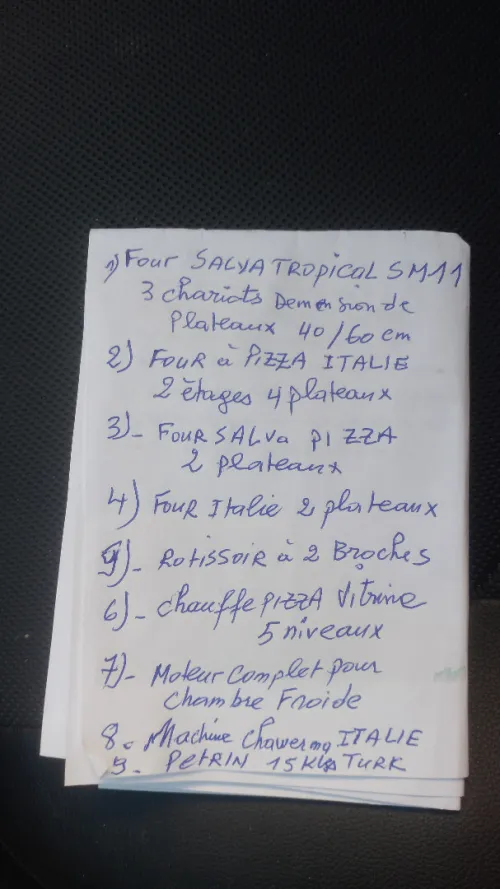 1) Four SALVA TROPICAL SM11
3 chariots Demension de
Plateaux 40/60 cm
2) FOUR à PIZZA ITALIE
2 étages 4 plateaux
3)- FOUR SALVA PIZZA
2 plateaux
4) FOUR ITalie 2 plateaux
)- ROTISSOIR à 2 Broches
6)- chauffe PIZZA Vitrine
5 niveaux
7)- Moteur complet pour
chambre Froide
8- Machine chawerma ITALIE
9- PETRIN 15 TURK